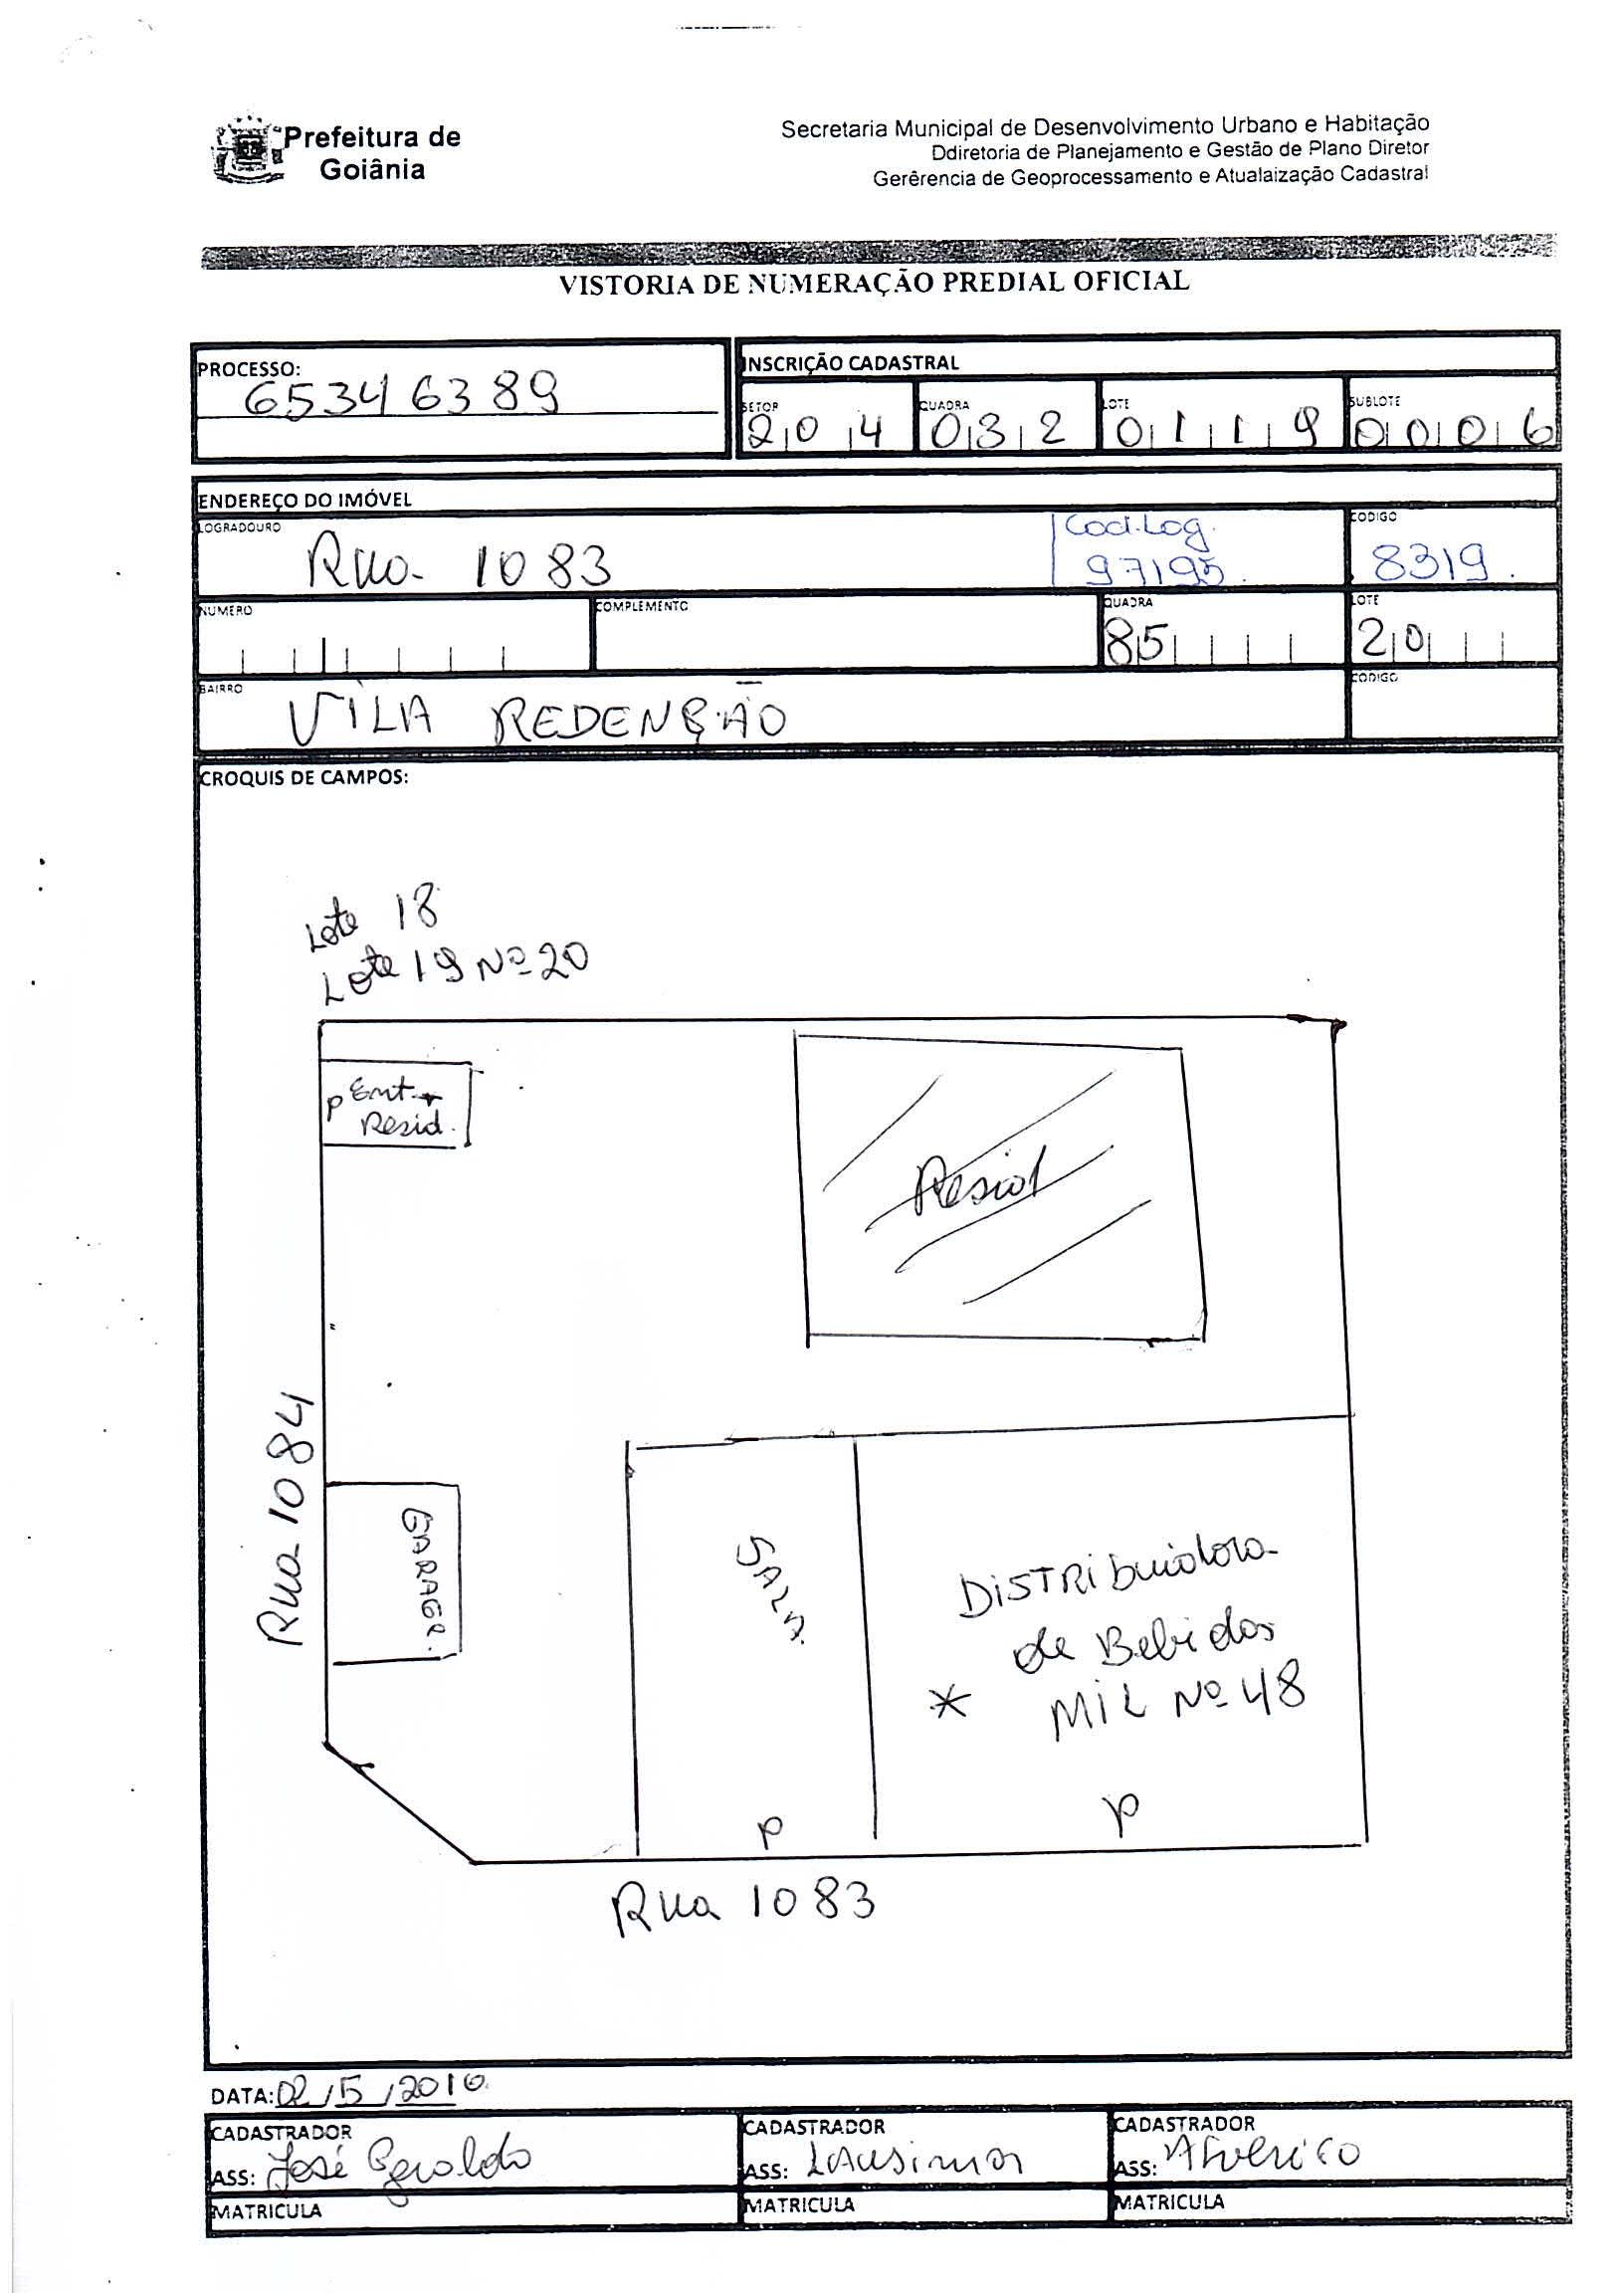 Prefeitura de
Goiânia
Secretaria Municipal de Desenvolvimento Urbano e Habitação
Ddiretoria de Planejamento e Gestão de Plano Diretor
Gerêrencia de Geoprocessamento e Atualaização Cadastral
VISTORIA DE NUMERAÇÃO PREDIAL OFICIAL
PROCESSO:
65346389
INSCRIÇÃO CADASTRAL
SETOR QUADRA LOTE SUBLOTE
204 032 0119 0006
ENDEREÇO DO IMÓVEL
LOGRADOURO CODIGO
Rua 1083 Cod.Log. 8319
97195
NUMERO COMPLEMENTO QUADRA LOTE
85 20
BAIRRO CODIGO
VILA REDENÇÃO
CROQUIS DE CAMPOS:
Lote 18
Lote 19 Nº 20
P Ent
Resid.
Resid
Rua 1084
GARAGE.
SALA
DISTRIbuidora
de Bebidas
* MIL Nº 48
P P
Rua 1083
DATA: 02/5/2016
CADASTRADOR CADASTRADOR CADASTRADOR
ASS: José Geraldo ASS: Lausimar ASS:
MATRICULA MATRICULA MATRICULA